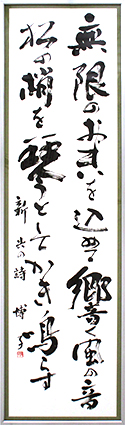 無限のおもいを込めて響く風の音
松の梢を琴としてかき鳴らす
の詩 博